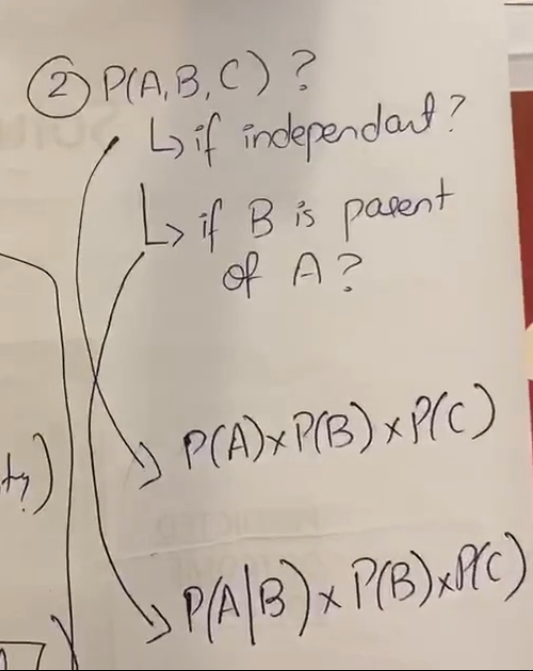 ② P(A,B,C) ?
↳ if independant?
↳ if B is parent
of A?
P(A)×P(B)×P(C)
P(A|B)×P(B)×P(C)